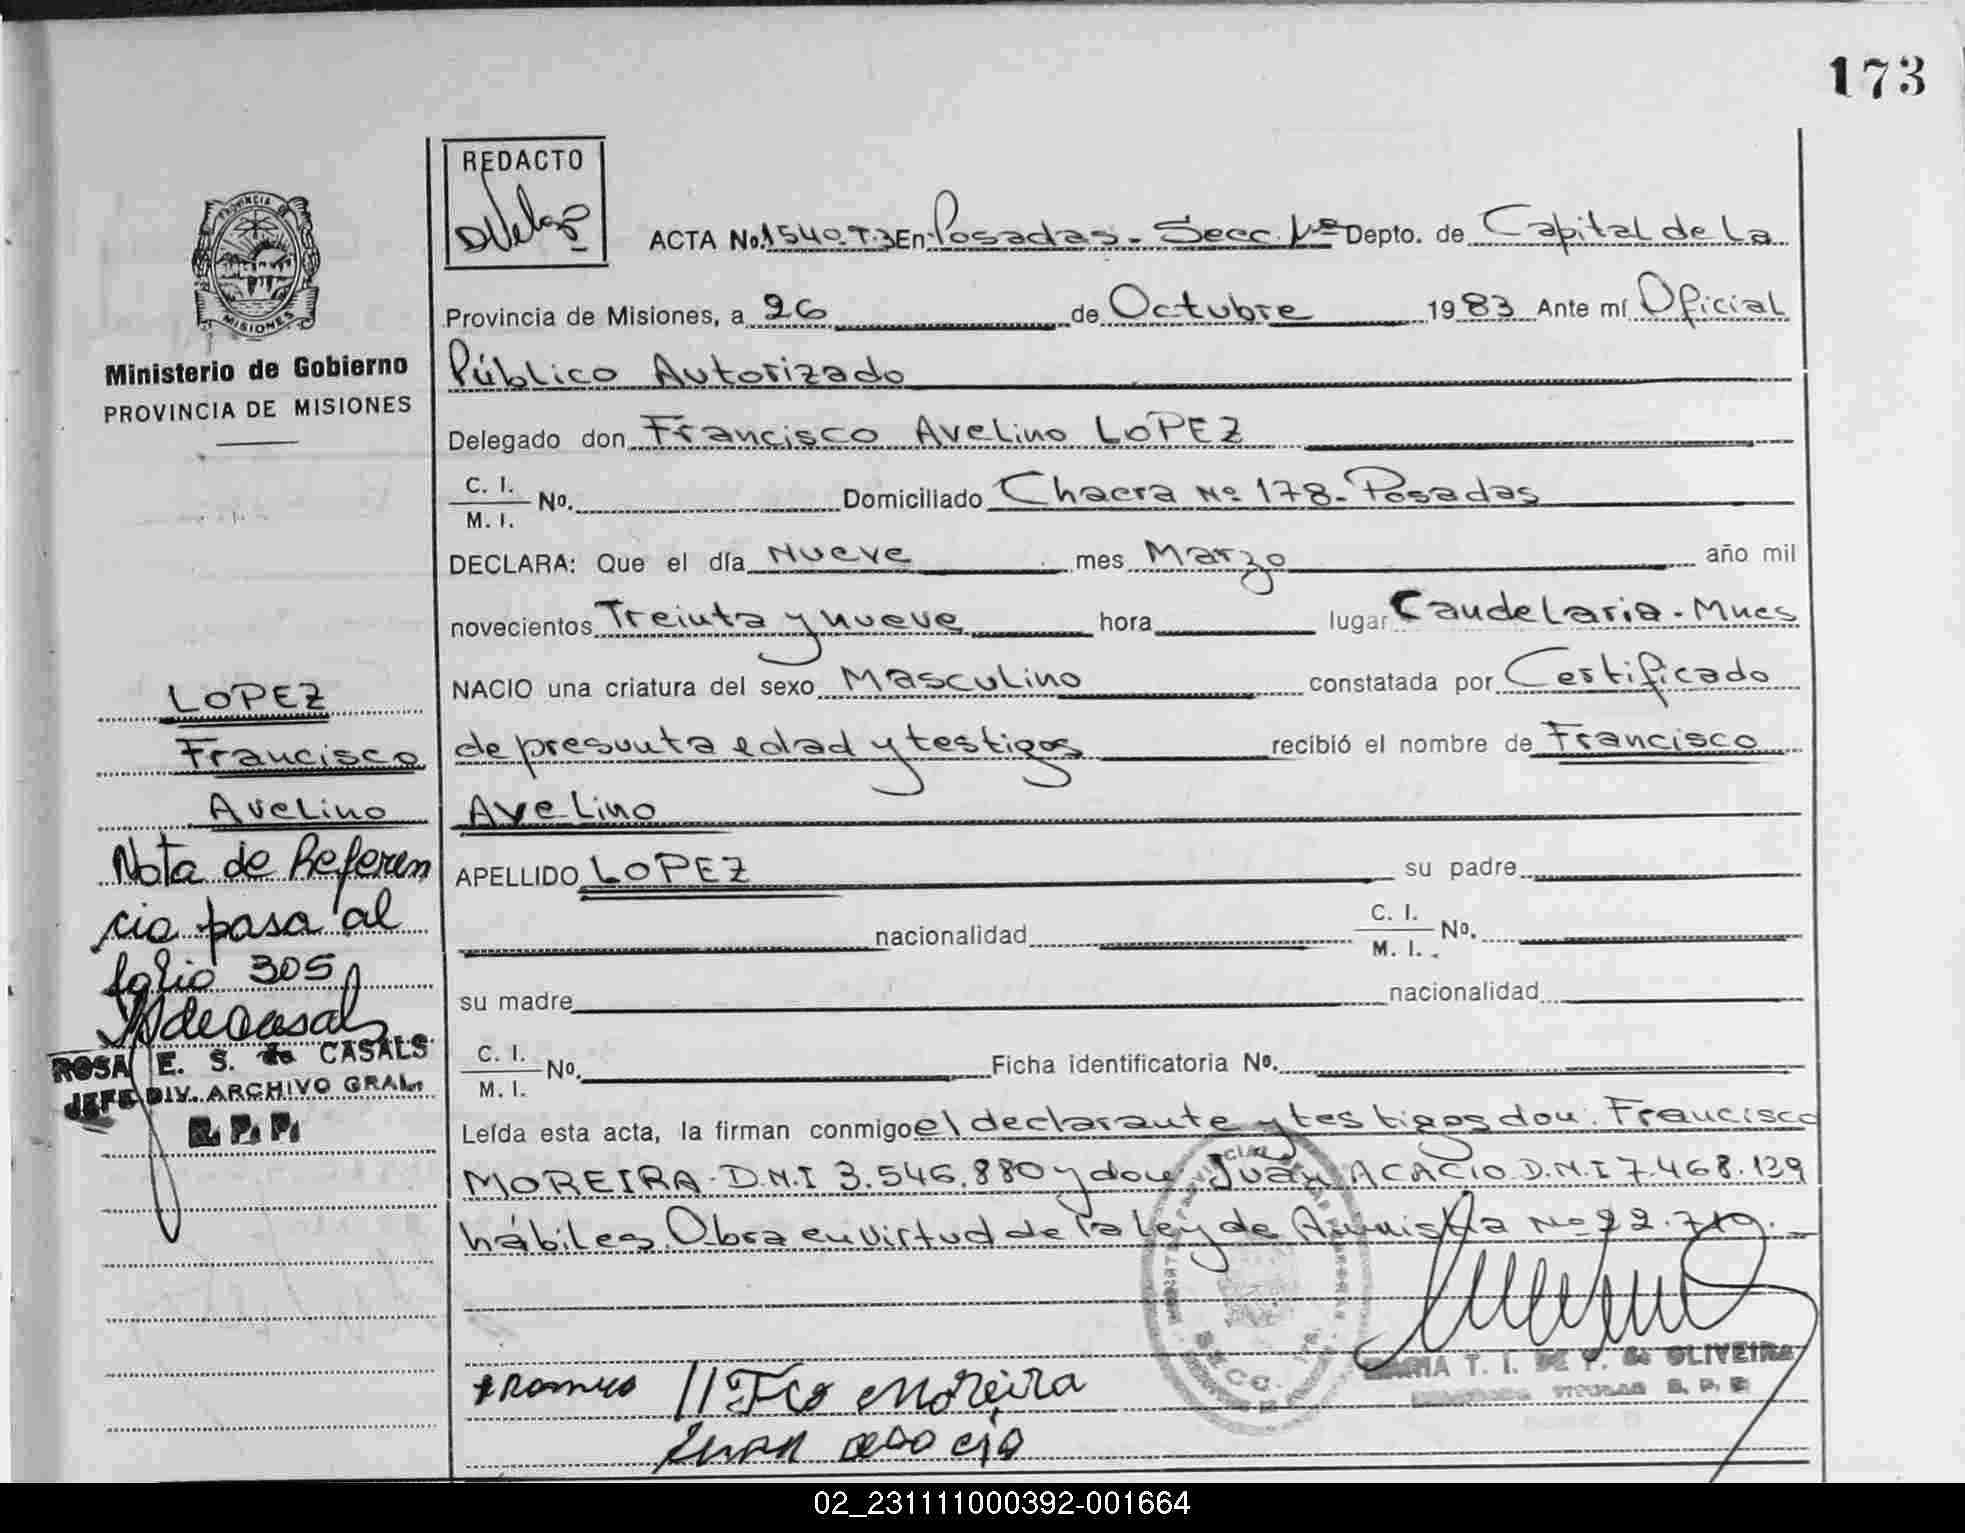 173
REDACTO
ACTA No. 1540. T.3 En Posadas. Secc. 1ª Depto. de Capital de La
Provincia de Misiones, a 26 de Octubre 1983 Ante mí Oficial
Público Autorizado
Delegado don Francisco Avelino LOPEZ
C. I.
M. I. No. Domiciliado Chacra Nº 178. Posadas
DECLARA: Que el día Nueve mes Marzo año mil
novecientos Treinta y nueve hora lugar Candelaria - Mnes
NACIO una criatura del sexo Masculino constatada por Certificado
de presunta edad y testigos recibió el nombre de Francisco
Avelino
APELLIDO LOPEZ su padre
nacionalidad C. I.
M. I. No.
su madre nacionalidad
C. I.
M. I. No. Ficha identificatoria No.
Leída esta acta, la firman conmigo el declarante y testigos don: Francisco
MOREIRA. D.N.I 3.546.880 y don Juan ACACIO. D.N.I 7.468.129
hábiles. Obra en virtud de la ley de Amnistia Nº 22.710.
Fco Moreira
Juan
MARIA T. I. DE P. de OLIVEIRA
SECC. 1ra.
PROVINCIA DE
MISIONES
Ministerio de Gobierno
PROVINCIA DE MISIONES
LOPEZ
Francisco
Avelino
Nota de Referen
cia pasa al
folio 305
ROSA E. S. de CASALS
JEFE DIV. ARCHIVO GRAL.
R. P. P.
02_231111000392-001664